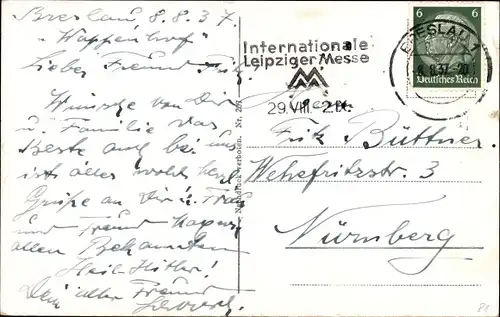 Breslau 8.8.37.
"Wappenhof"
Lieber Freund Fritz
Wünsche von Dir
u. Familie das
Beste auch bei uns
ist alles wohl herzl.
Grüße an Dir u. Frau
und Freund
allen Bekannten
Heil Hitler!
Dein alter Freund
Nachdruck verboten. Nr.
Internationale
Leipziger Messe
MM
29.VIII. 2.IX.
6
BRESLAU 1
8.37.-20
Deutsches Reich
Fritz Büttner
Wehefritzstr. 3
Nürnberg